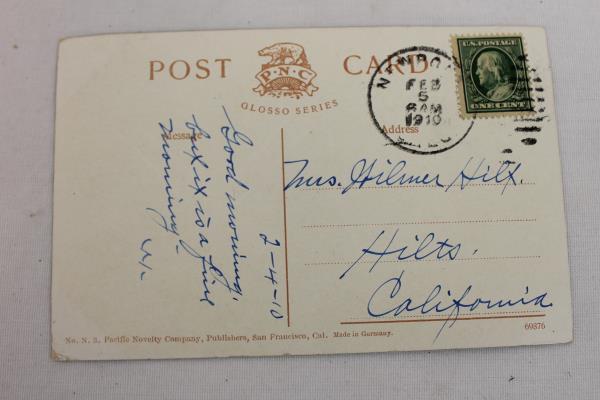 POST CARD
P·N·C
GLOSSO SERIES
U.S. POSTAGE
ONE CENT
FEB
5
8 AM
1910
Message
Address
2-4-10
Good morning,
is a fine
morning-
Mrs. Hilmer Hilt.
Hilts,
California
No. N. 3. Pacific Novelty Company, Publishers, San Francisco, Cal. Made in Germany.
69376